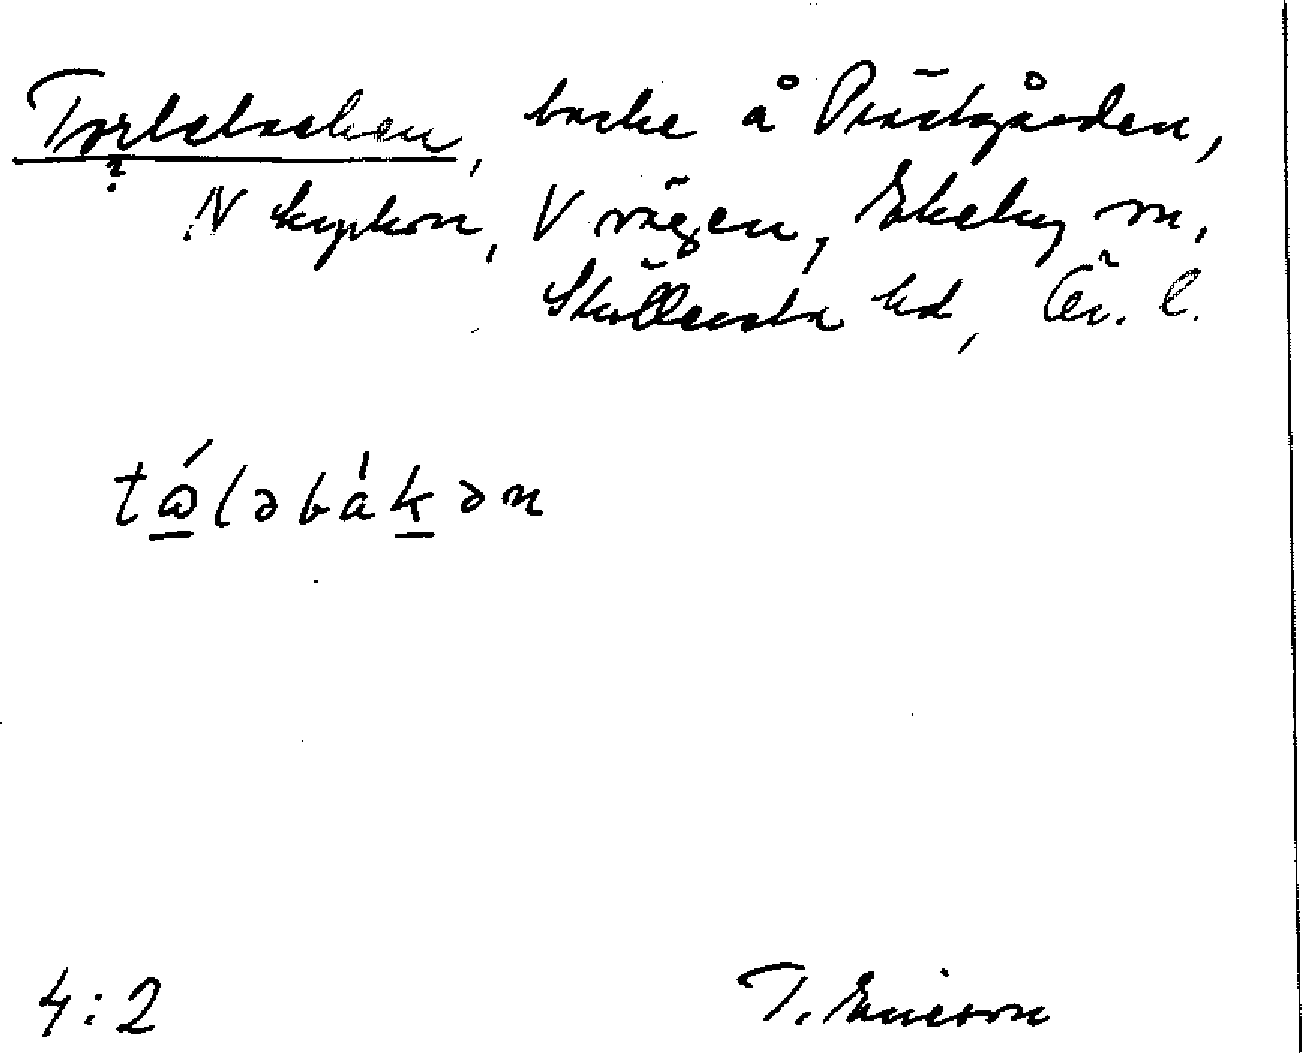 Torlebacken, backe å Prästgården,
?
N kyrkan, V vägen, Ekeby sn,
Sköllersta hd, Ör. l.
tɷ́ləbàkən
4:2 T. Ericson